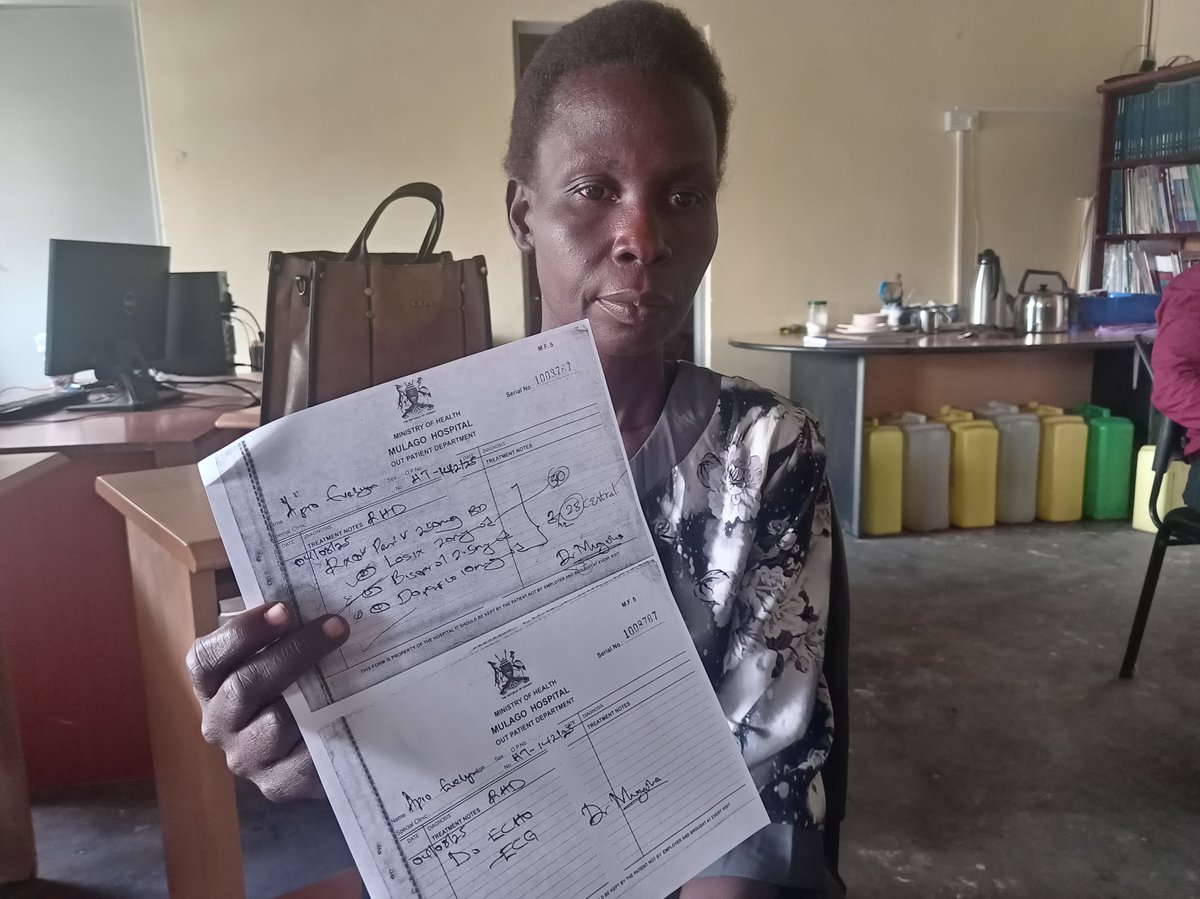 M.F. 5
Serial No. 1009787
MINISTRY OF HEALTH
MULAGO HOSPITAL
OUT PATIENT DEPARTMENT
Name Apio Evelyn Sex O.P.No. H7-142/25
Special Clinic
DATE DIAGNOSIS
TREATMENT NOTES RHD
DATE DIAGNOSIS
TREATMENT NOTES
04/08/25
Pen V 250mg BD
Lasix 20mg
2.5mg
10mg
30
28 Central
Dr Mugisha
THIS FORM IS PROPERTY OF THE HOSPITAL IT SHOULD BE KEPT BY THE PATIENT NOT BY EMPLOYER AND BROUGHT AT EVERY VISIT
M.F. 5
Serial No. 1009787
MINISTRY OF HEALTH
MULAGO HOSPITAL
OUT PATIENT DEPARTMENT
Name Apio Evelyn Age Sex O.P.No. H7-142/25
Special Clinic
DATE DIAGNOSIS
TREATMENT NOTES RHD
DIAGNOSIS
TREATMENT NOTES
04/08/25
Do ECHO
-ECG
Dr Mugisha
LD BE KEPT BY THE PATIENT NOT BY EMPLOYER AND BROUGHT AT EVERY VISIT
DELL